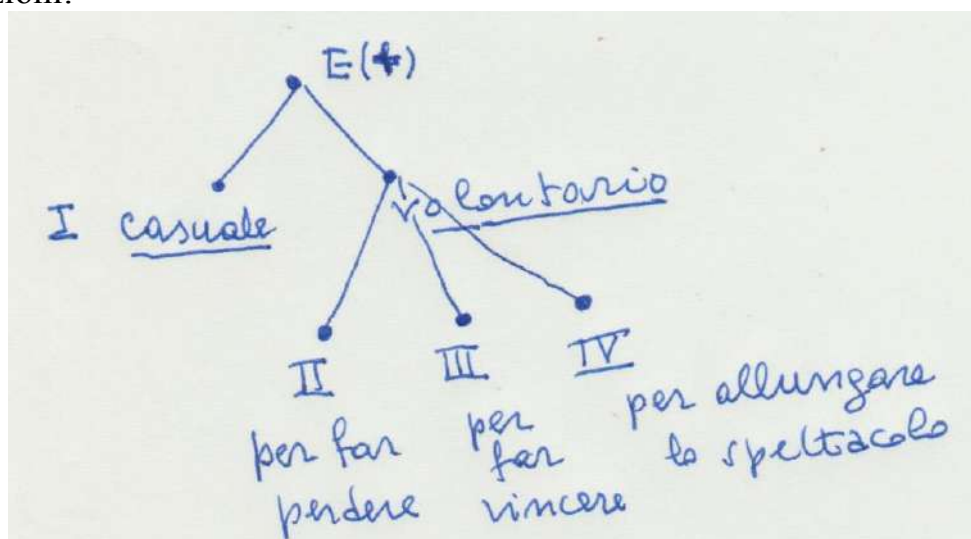 E(+)
I casuale
volontario
II III IV
per far
perdere
per
far
vincere
per allungare
lo spettacolo